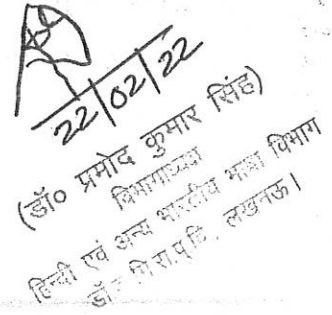 22/02/22
(डॉ० प्रमोद कुमार सिंह)
विभागाध्यक्ष
हिन्दी एवं अन्य भारतीय भाषा विभाग
लखनऊ।